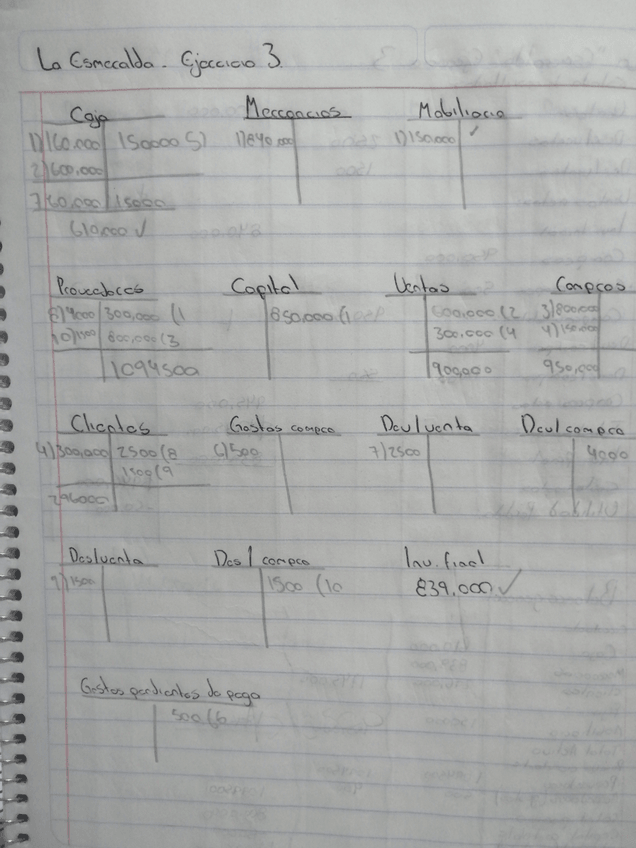 La Esmeralda - Ejercicio 3
Caja Mercancias Mobiliario
1)160,000 150000 5) 1)840,000 1)150,000 ✓
2)600,000
7)60,000 15000
610,000 ✓
Proveedores Capital Ventas Compras
300,000 (1 850,000 (1 600,000 (2 3)800,000
10)1500 800,000 (3 300,000 (4 4)150,000
1094500 900,000 950,000
Clientes Gastos compra Dev/venta Dev/compra
4)300,000 2500 (8 6)500 7)2500 4000
1500 (9
296000
Des/venta Des/compra Inv. final
9)1500 1500 (10 839,000 ✓
Gastos pendientes de pago
500 (6